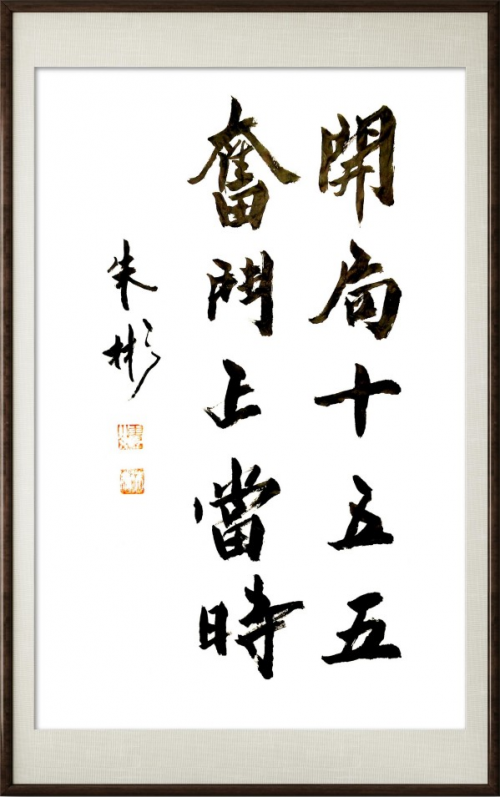 開局十五五
奮鬥正當時
朱彬